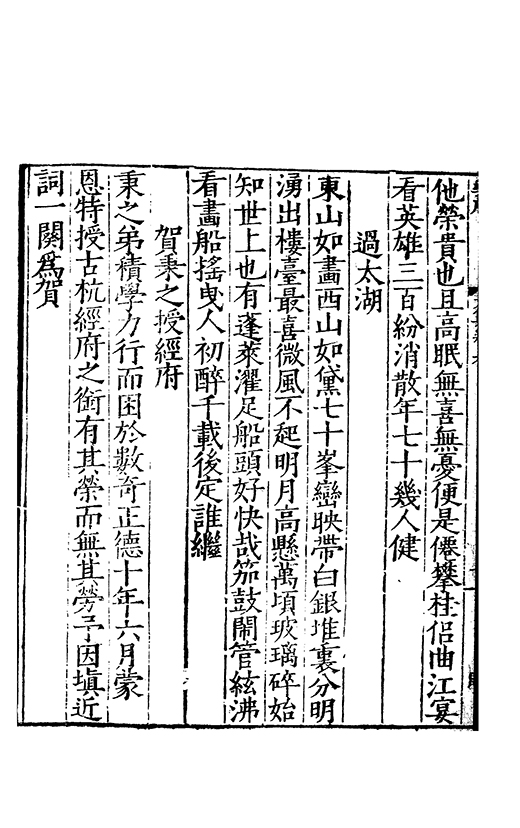 他榮貴也且高眠無喜無憂便是僊攀桂侣曲江宴
看英雄三百紛消散年七十幾人健
過太湖
東山如畫西山如黛七十峯巒映帶白銀堆裏分明
湧出樓臺最喜微風不起明月高懸萬頃玻璃碎始
知世上也有蓬萊濯足船頭好快哉笳鼓鬧管絃沸
看畫船搖曳人初醉千載後定誰繼
賀秉之授經府
秉之弟積學力行而困於數奇正德十年六月蒙
恩特授古杭經府之銜有其榮而無其勞予因塡近
詞一闋爲賀